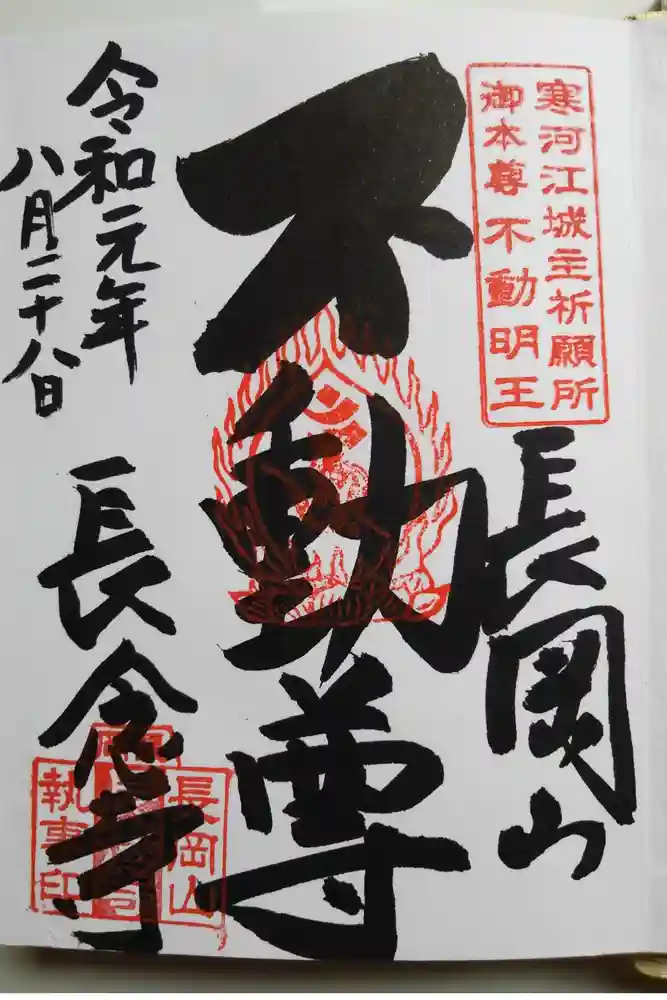 寒河江城主祈願所
御本尊 不動明王
長岡山
不動尊
令和元年
八月二十八日
長念寺
長岡山
執事印